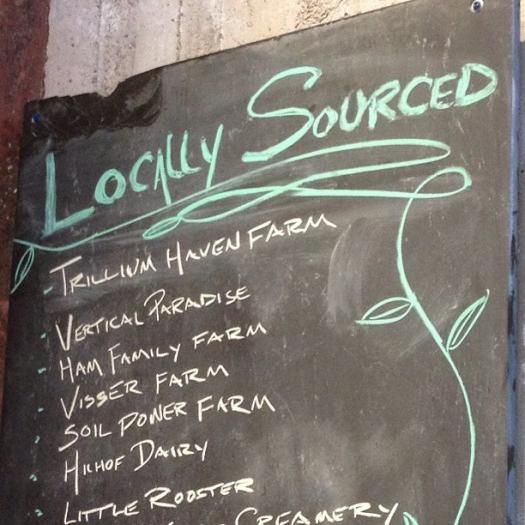 LOCALLY SOURCED
- TRILLIUM HAVEN FARM
- VERTICAL PARADISE
- HAM FAMILY FARM
- VISSER FARM
- SOIL POWER FARM
- HILHOF DAIRY
- LITTLE ROOSTER
CREAMERY